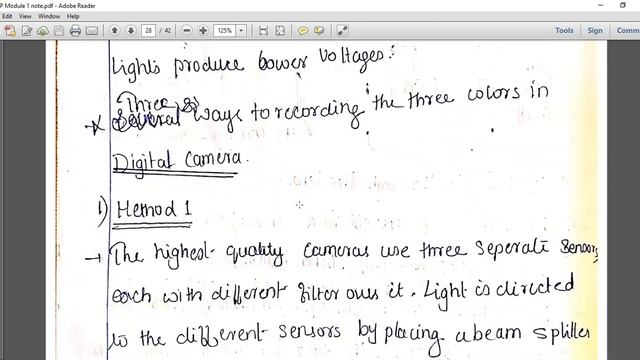 P Module 1 note.pdf - Adobe Reader
Edit View Window Help
28 / 42 125% Tools Sign Comment
Lights produce bower Voltages.
Three
Several ways to recording the three colors in
Digital Camera.
1) Method 1
→ The highest quality cameras use three seperate sensors
each with different filter over it. Light is directed
to the different sensors by placing a beam splitter